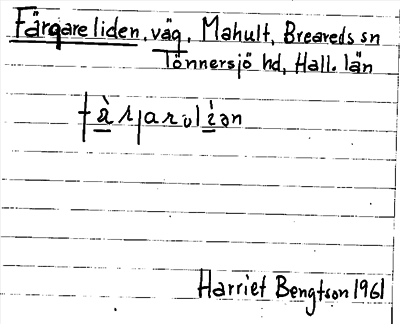 Färgareliden, väg, Mahult, Breareds sn
Tönnersjö hd, Hall. län
fàrjarəlìən
Harriet Bengtson 1961